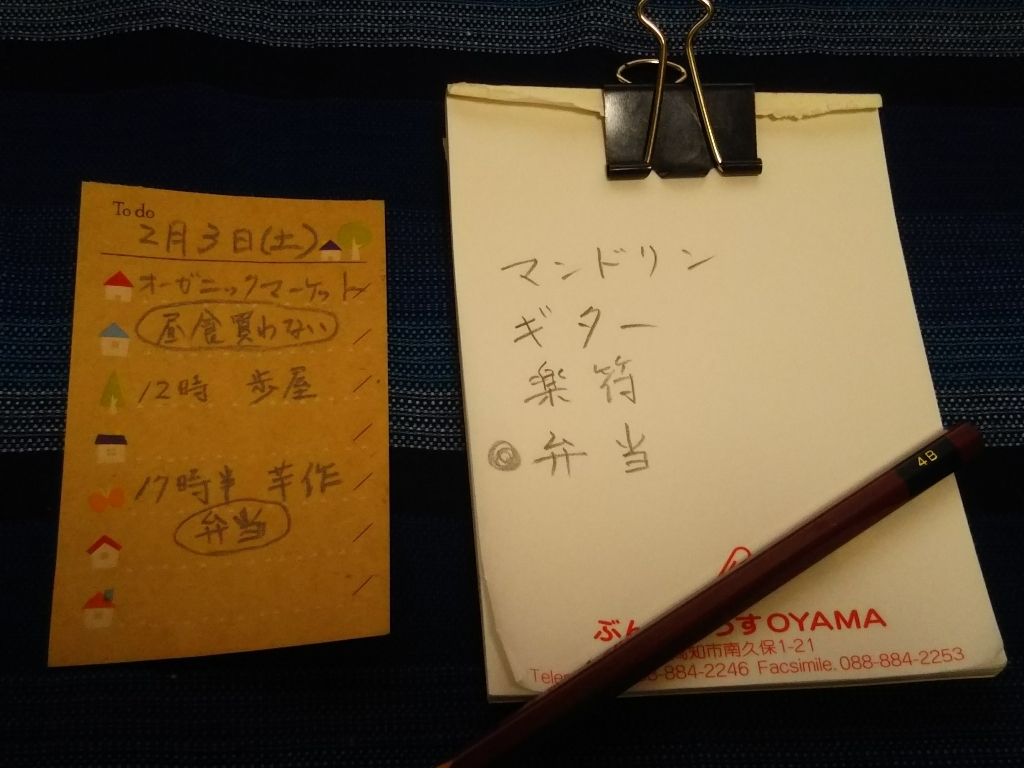 To do
2月3日(土)
オーガニックマーケット
昼食買わない
12時 歩屋
17時半 芋作
弁当
マンドリン
ギター
楽符
◎弁当
すOYAMA
知市南久保1-21
884-2246 Facsimile. 088-884-2253
4B